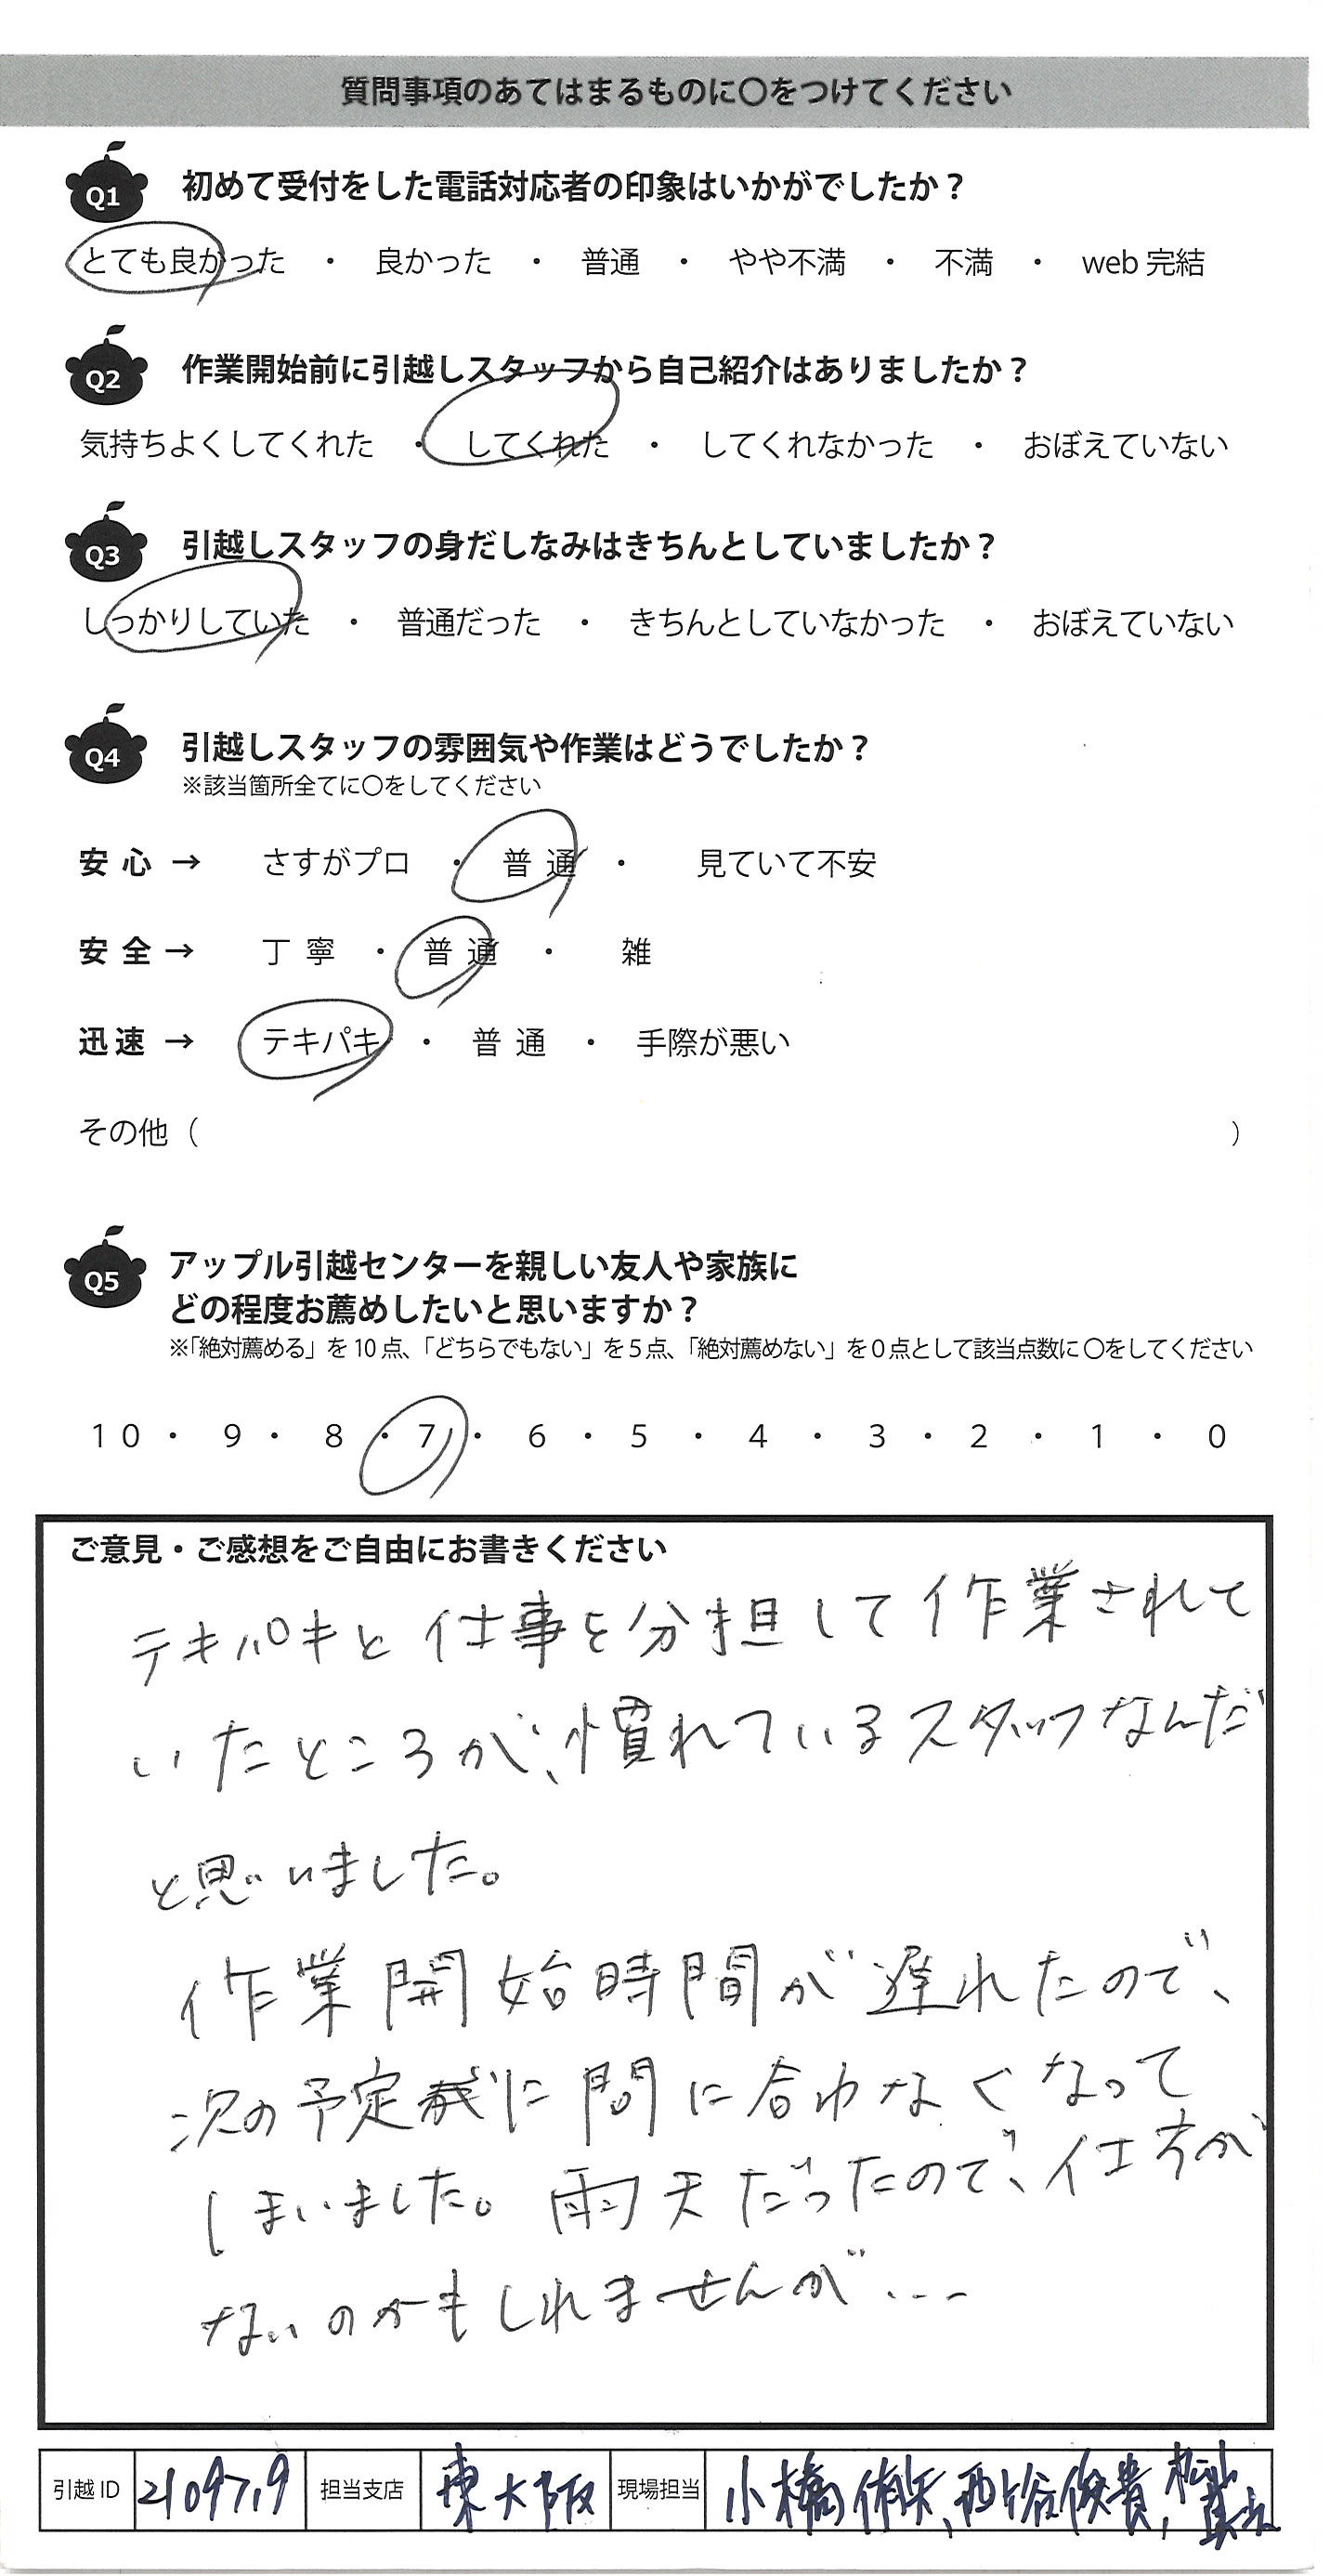 質問事項のあてはまるものに〇をつけてください
Q1 初めて受付をした電話対応者の印象はいかがでしたか？
とても良かった ・ 良かった ・ 普通 ・ やや不満 ・ 不満 ・ web 完結
Q2 作業開始前に引越しスタッフから自己紹介はありましたか？
気持ちよくしてくれた ・ してくれた ・ してくれなかった ・ おぼえていない
Q3 引越しスタッフの身だしなみはきちんとしていましたか？
しっかりしていた ・ 普通だった ・ きちんとしていなかった ・ おぼえていない
Q4 引越しスタッフの雰囲気や作業はどうでしたか？
※該当箇所全てに〇をしてください
安心 → さすがプロ ・ 普通 ・ 見ていて不安
安全 → 丁寧 ・ 普通 ・ 雑
迅速 → テキパキ ・ 普通 ・ 手際が悪い
その他（ ）
Q5 アップル引越センターを親しい友人や家族に
どの程度お薦めしたいと思いますか？
※「絶対薦める」を 10 点、「どちらでもない」を 5 点、「絶対薦めない」を 0 点として該当点数に 〇をしてください
10 ・ 9 ・ 8 ・ 7 ・ 6 ・ 5 ・ 4 ・ 3 ・ 2 ・ 1 ・ 0
ご意見・ご感想をご自由にお書きください
テキパキと仕事を分担して作業されて
いたところが、慣れているスタッフなんだ
と思いました。
作業開始時間が遅れたので、
次の予定に間に合わなくなって
しまいました。雨天だったので、仕方が
ないのかもしれませんが...
引越 ID 担当支店 東大阪 現場担当 小橋 西谷俊貴